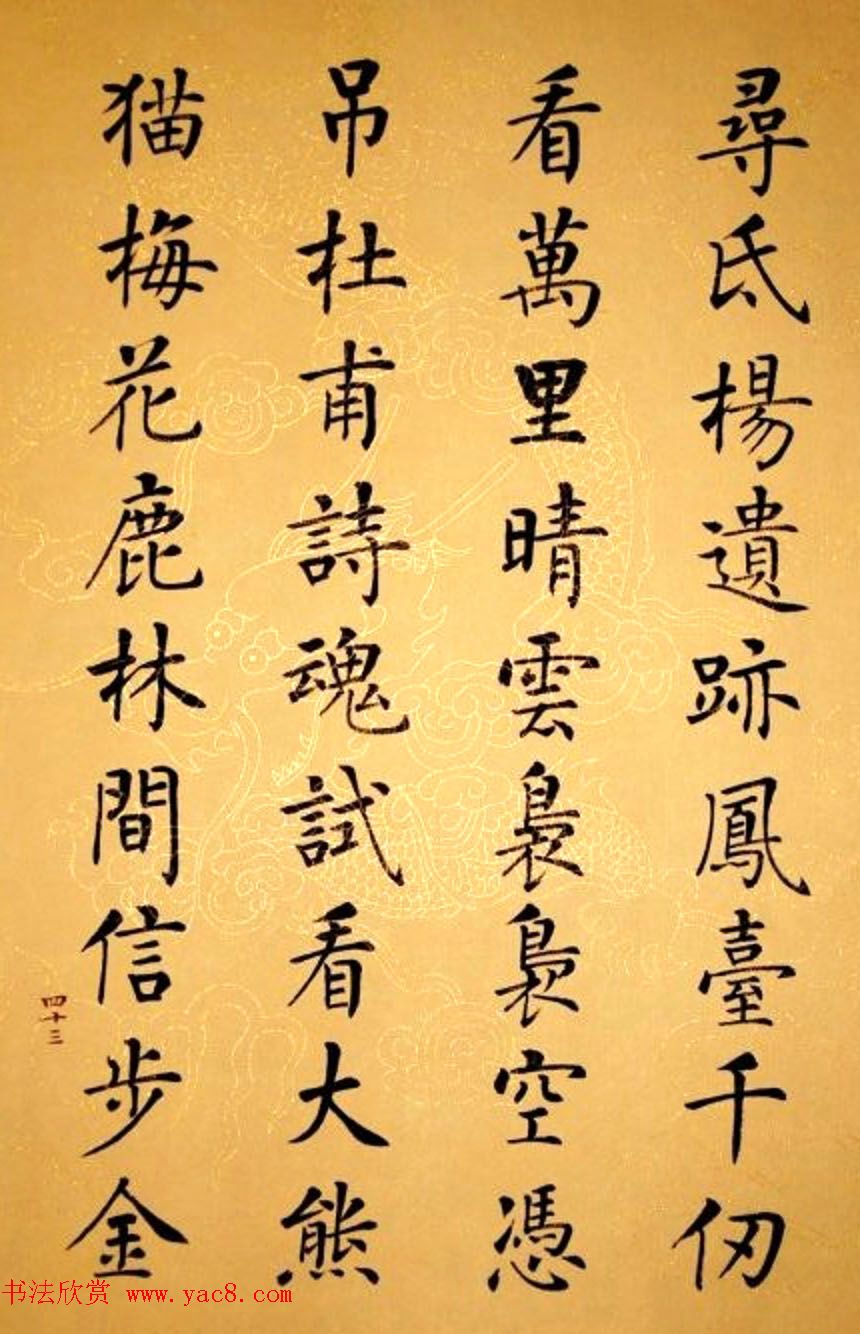 尋氐楊遺跡鳳臺千仞
看萬里晴雲裊裊空憑
吊杜甫詩魂試看大熊
猫梅花鹿林間信步金
四十三
书法欣赏 www.yac8.com